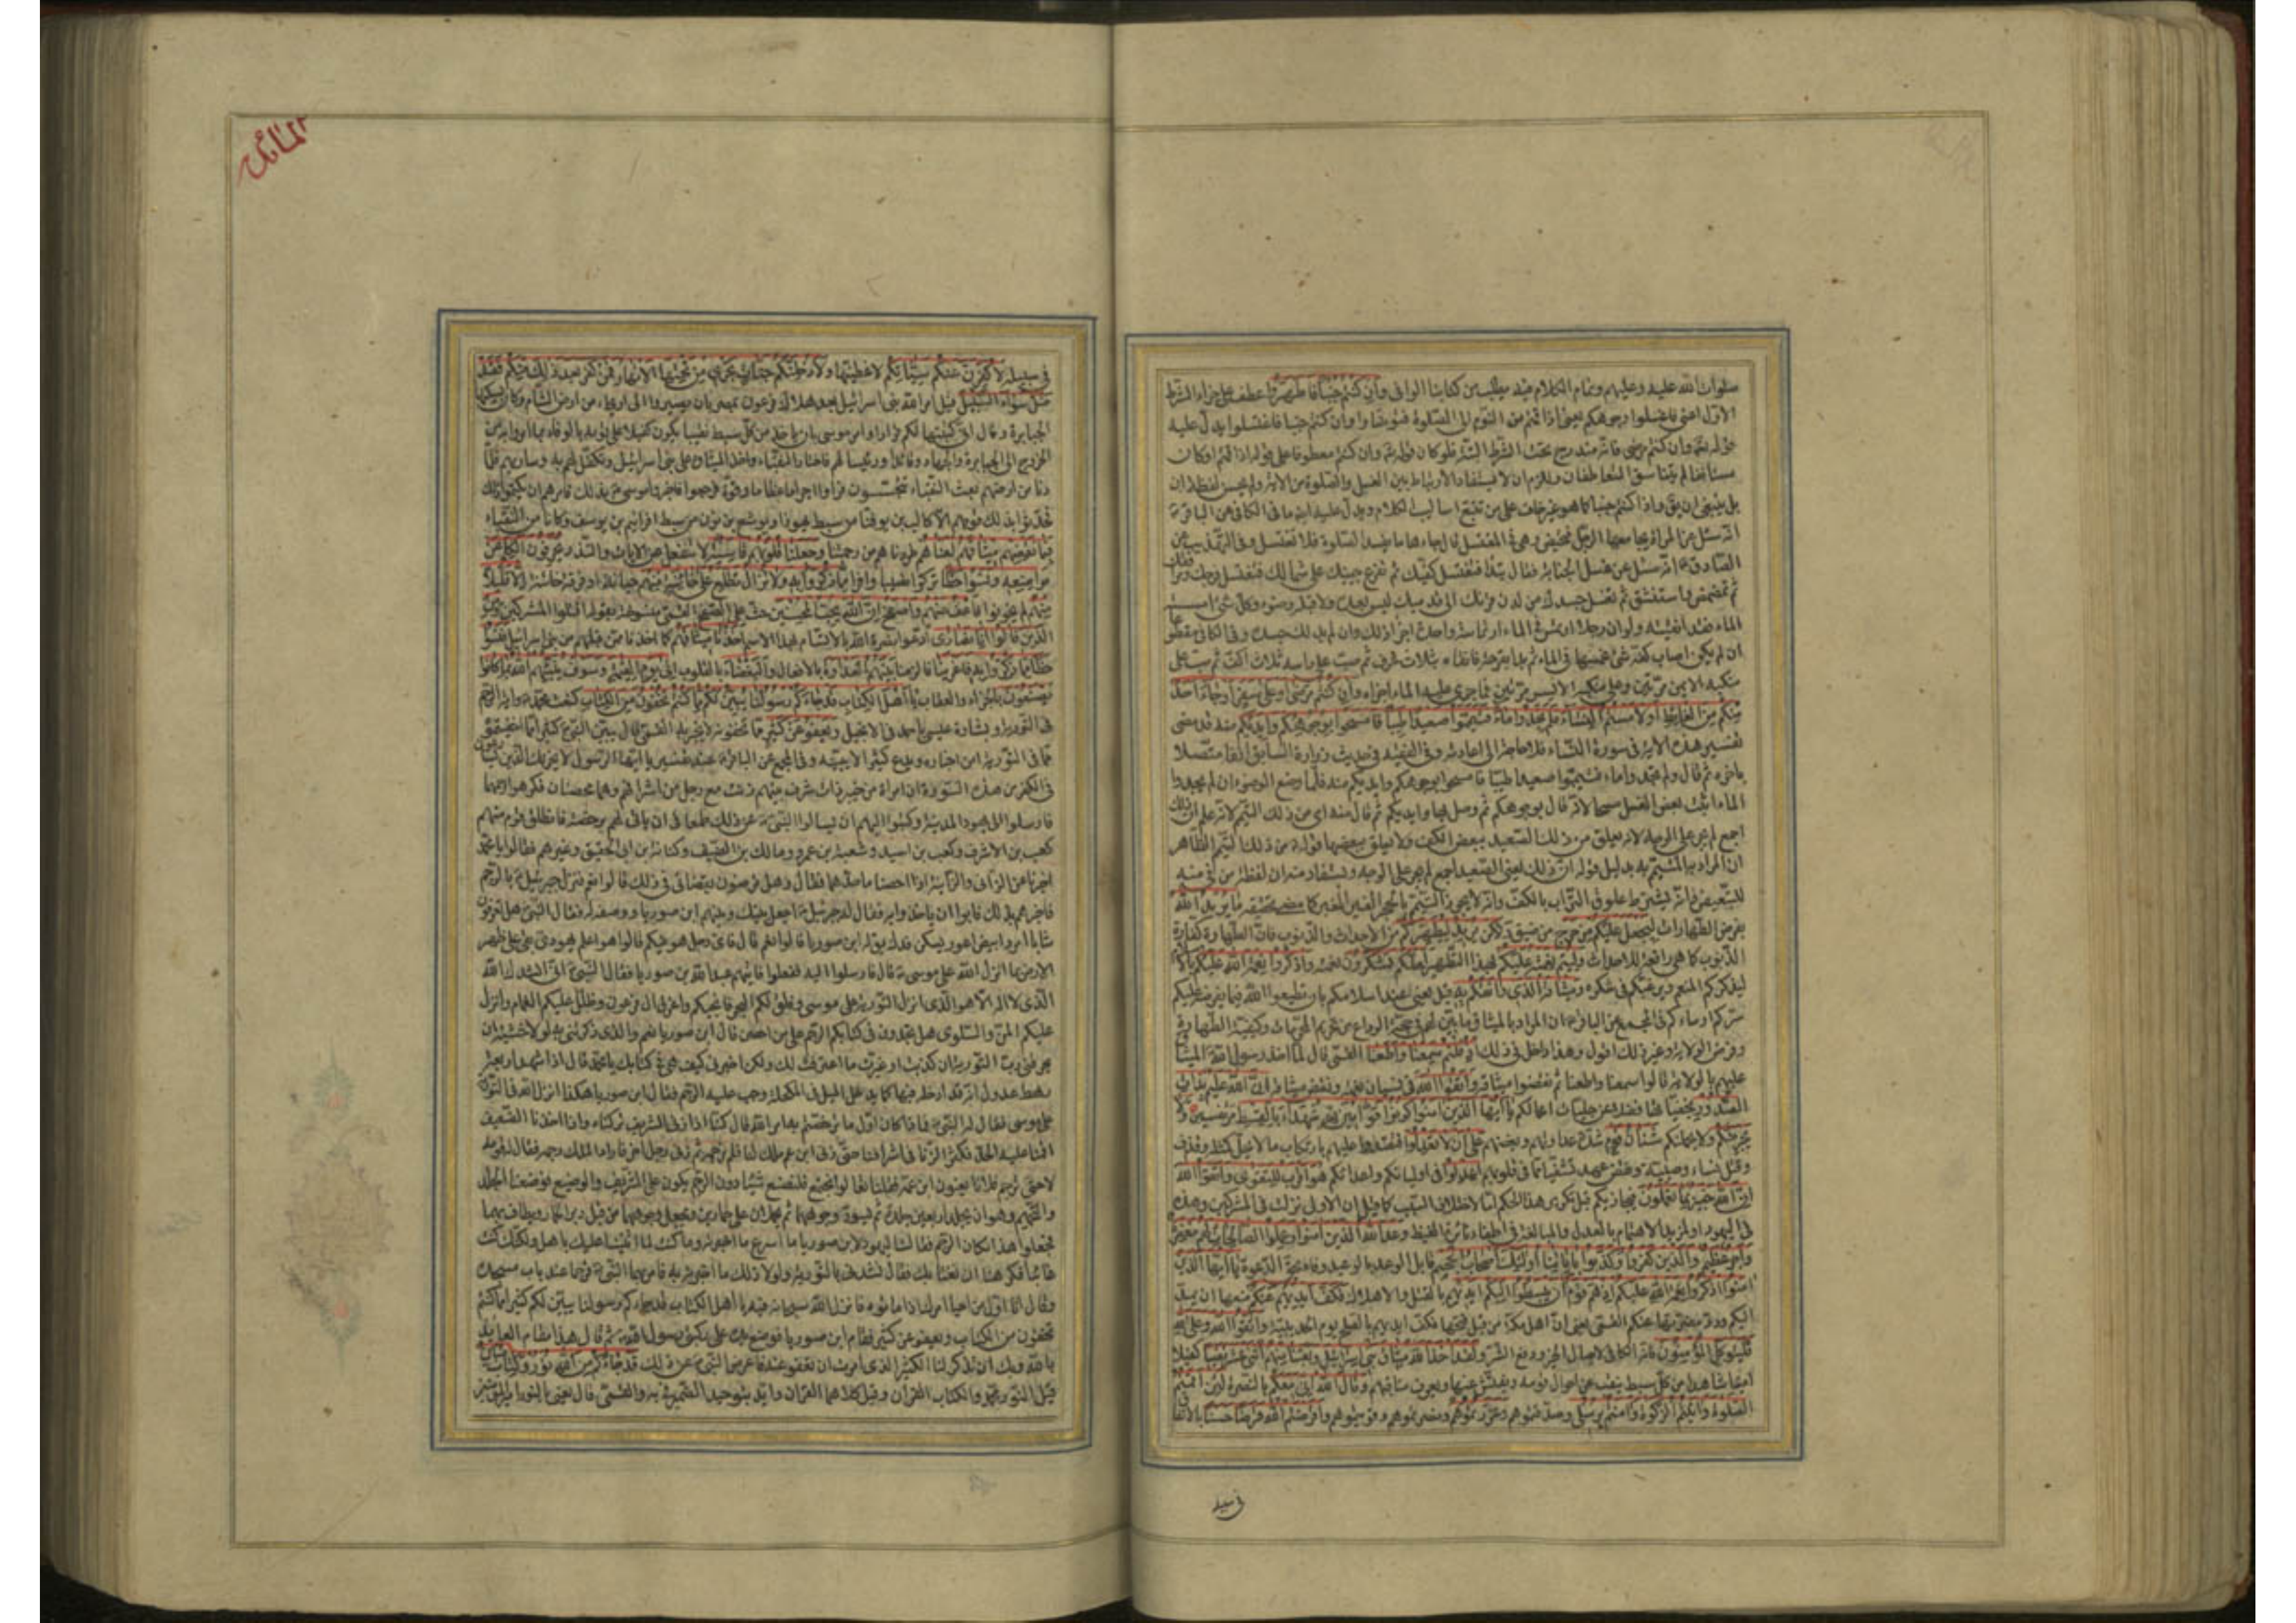 صلوات الله عليه وعليهم وتمام الكلام فيه يطلب من كتابنا الوافي وان كنتم جنبا فاطهروا عطف على جزاء الشرط
الاول اعني فاغسلوا وجوهكم يعني اذا قمتم من النوم الى الصلوة فتوضأوا وان كنتم جنبا فاغتسلوا يدل عليه
قوله تعالى وان كنتم مرضى فانه مندرج تحت الشرط البتة فلو كان قوله وان كنتم معطوفا على قوله اذا قمتم او كان
مستأنفا لم يتناسق المتعاطفان ولزم ان لا يستفاد الارتباط بين الغسل والصلوة من الاية ولم يحسن لفظة ان
بل ينبغي ان يق واذا كنتم جنبا كما هو غير خاف على من تتبع اساليب الكلام ويدل عليه ايضا ما في الكافي عن الباقر
انه سئل عن المراة يجامعها الرجل فتحيض وهي في المغتسل قال جاءها ما يفسد الصلوة فلا تغتسل وفي التهذيب عن
الصادق انه سئل عن غسل الجنابة فقال تبدا فتغسل كفيك ثم تفرغ بيمينك على شمالك فتغسل فرجك ومرافقك
ثم تمضمض واستنشق ثم تغسل جسدك من لدن قرنك الى قدميك ليس بعده ولا قبله وضوء وكل شئ امسسته
الماء فقد انقيته ولو ان رجلا ارتمس في الماء ارتماسة واحدة اجزأه ذلك وان لم يدلك جسده وفي الكافي مقطوعا
ان لم يكن اصاب كفه شئ غمسها في الماء ثم بدا بفرجه فانقاه بثلاث غرف ثم صب على راسه ثلاث اكف ثم صب على
منكبه الايمن مرتين وعلى منكبه الايسر مرتين فما جرى عليه الماء اجزاه وان كنتم مرضى او على سفر او جاء احد
منكم من الغائط او لامستم النساء فلم تجدوا ماء فتيمموا صعيدا طيبا فامسحوا بوجوهكم وايديكم منه قد مضى
تفسير هذه الاية في سورة النساء فلا حاجة الى اعادته وفي الفقيه في حديث زرارة السابق آنفا متصلا
باخره ثم قال ولم تجدوا ماء فتيمموا صعيدا طيبا فامسحوا بوجوهكم وايديكم منه فلما وضع الوضوء ان لم يجدوا
الماء اثبت بعض الغسل مسحا لانه قال بوجوهكم ثم وصل بها وايديكم ثم قال منه اي من ذلك التيمم لانه علم ان ذلك
اجمع لم يجر على الوجه لانه يعلق من ذلك الصعيد ببعض الكف ولا يعلق ببعضها قوله من ذلك التيمم الظاهر
ان المراد به المتيمم به بدليل قوله ان ذلك يعني الصعيد اجمع لم يجر على الوجه ويستفاد منه ان لفظة من في منه
للتبعيض وانه يشترط علوق التراب بالكف وانه لا يجوز التيمم بالحجر الغير المغبر كما مضى تحقيقه ما يريد الله
بفرض الطهارات ليجعل عليكم من حرج من ضيق ولكن يريد ليطهركم من الاحداث والذنوب فان الطهارة كفارة
الذنوب كما هي رافعة للاحداث وليتم نعمته عليكم بهذا التطهير لعلكم تشكرون نعمته واذكروا نعمة الله عليكم بالاسلام
ليذكركم المنعم ويرغبكم في شكره وميثاقه الذي واثقكم به قيل يعني عند اسلامكم بان تطيعوا الله فيما يفرضه عليكم
سركم او ساءكم في المجمع عن الباقر ان المراد بالميثاق ما بين لهم في حجة الوداع من تحريم المحرمات وكيفية الطهارة
وفرض الولاية وغير ذلك اقول وهذا داخل في ذلك اذ قلتم سمعنا واطعنا القمي قال لما اخذ رسول الله الميثاق
عليهم بالولاية قالوا سمعنا واطعنا ثم نقضوا ميثاقه واتقوا الله في نسيان نعمته ونقض ميثاقه ان الله عليم بذات
الصدور بخفياتها فضلا عن جليات اعمالكم يا ايها الذين امنوا كونوا قوامين لله شهداء بالقسط ولا
يجرمنكم ولا يحملنكم شنآن قوم شدة عداوتهم وبغضهم على ان لا تعدلوا فتعتدوا عليهم بارتكاب ما لا يحل كمثلة وقذف
وقتل نساء وصبية ونقض عهد تشفيا مما في قلوبكم اعدلوا في اوليائكم واعدائكم هو اقرب للتقوى واتقوا الله
ان الله خبير بما تعملون فيجازيكم قيل تكرير هذا الحكم اما لاختلاف السبب كما قيل ان الاول نزلت في المشركين وهذه
في اليهود او لمزيد الاهتمام بالعدل والمبالغة في اطفاء نائرة الغيظ وعد الله الذين امنوا وعملوا الصالحات لهم مغفرة
واجر عظيم والذين كفروا وكذبوا باياتنا اولئك اصحاب الجحيم قابل الوعد بالوعيد وفاء بحق الدعوة يا ايها الذين
امنوا اذكروا نعمة الله عليكم اذ هم قوم ان يبسطوا اليكم ايديهم بالقتل والاهلاك فكف ايديهم عنكم منعها ان تمد
اليكم ورد مضرتها عنكم القمي يعني ان اهل مكة من قبل فتحها فكف ايديهم بالصلح يوم الحديبية واتقوا الله وعلى الله
فليتوكل المؤمنون فانه الكافي لايصال الخير ودفع الشر ولقد اخذ الله ميثاق بني اسرائيل وبعثنا منهم اثني عشر نقيبا كفيلا
امينا شاهدا من كل سبط ينقب عن احوال قومه ويفتش عنها ويعرف مناقبهم وقال الله اني معكم بالنصرة لئن اقمتم
الصلوة واتيتم الزكوة وامنتم برسلي وصدقتموهم وعزرتموهم ونصرتموهم وقويتموهم واقرضتم الله قرضا حسنا بالانفاق
في سبيله
المائدة
في سبيله لاكفرن عنكم سيئاتكم لاغطينها ولادخلنكم جنات تجري من تحتها الانهار فمن كفر بعد ذلك منكم فقد
ضل سواء السبيل قيل امر الله بني اسرائيل بعد هلاك فرعون بمصر بان يسيروا الى اريحاء من ارض الشام وكان يسكنها
الجبابرة وقال اني كتبتها لكم قرارا وامر موسى بان ياخذ من كل سبط نقيبا يكون كفيلا على قومه بالوفاء بما امروا به من
الخروج الى الجبابرة والجهاد وقائدا ورئيسا لهم فاختار النقباء واخذ الميثاق على بني اسرائيل وتكفل لهم به وسار بهم فلما
دنا من ارضهم بعث النقباء يتجسسون فرأوا اجراما عظاما وقوة فرجعوا فاخبروا موسى بذلك فامرهم ان يكتموا ذلك
فحدثوا بذلك قومهم الا كالب بن يوفنا من سبط يهوذا ويوشع بن نون من سبط افرائيم بن يوسف وكانا من النقباء
فبما نقضهم ميثاقهم لعناهم طردناهم من رحمتنا وجعلنا قلوبهم قاسية لا تنفعل عن الايات والنذر يحرفون الكلم عن
مواضعه ونسوا حظا تركوا نصيبا وافرا مما ذكروا به ولا تزال تطلع على خائنة منهم خيانة او فرقة خائنة الا قليلا
منهم لم يخونوا فاعف عنهم واصفح ان الله يحب المحسنين حث على الصفح القمي منسوخة بقوله اقتلوا المشركين ومن
الذين قالوا انا نصارى ادعوا نصرة الله بالاتسام بهذا الاسم اخذنا ميثاقهم كما اخذنا ممن قبلهم من بني اسرائيل فنسوا
حظا مما ذكروا به فاغرينا فالزمنا بينهم العداوة بالافعال والبغضاء بالقلوب الى يوم القيمة وسوف ينبئهم الله بما كانوا
يصنعون بالجزاء والعقاب يا اهل الكتاب قد جاءكم رسولنا يبين لكم كثيرا مما كنتم تخفون من الكتاب كنعت محمد واية الرجم
في التورية وبشارة عيسى باحمد في الانجيل ويعفو عن كثير مما تخفونه لا يخبر به القمي قال يبين النبي كثيرا مما اخفيتموه
مما في التورية من اخباره ويدع كثيرا لا يبينه وفي المجمع عن الباقر عند تفسير يا ايها الرسول لا يحزنك الذين يسارعون
في الكفر من هذه السورة ان امراة من خيبر ذات شرف بينهم زنت مع رجل من اشرافهم وهما محصنان فكرهوا رجمهما
فارسلوا الى يهود المدينة وكتبوا اليهم ان يسالوا النبي عن ذلك طمعا في ان ياتي لهم برخصة فانطلق قوم منهم
كعب بن الاشرف وكعب بن اسيد وشعبة بن عمرو ومالك بن الضيف وكنانة بن ابي الحقيق وغيرهم فقالوا يا محمد
اخبرنا عن الزاني والزانية اذا احصنا ما حدهما فقال وهل ترضون بقضائي في ذلك قالوا نعم فنزل جبرئيل بالرجم
فاخبرهم بذلك فابوا ان ياخذوا به فقال له جبرئيل اجعل بينك وبينهم ابن صوريا ووصفه له فقال النبي هل تعرفون
شابا امرد ابيض اعور يسكن فدك يق له ابن صوريا قالوا نعم قال فاي رجل هو فيكم قالوا هو اعلم يهودي بقي على ظهر
الارض بما انزل الله على موسى قال فارسلوا اليه ففعلوا فاتاهم عبد الله بن صوريا فقال النبي اني انشدك الله
الذي لا اله الا هو الذي انزل التورية على موسى وفلق لكم البحر فانجيكم واغرق ال فرعون وظلل عليكم الغمام وانزل
عليكم المن والسلوى هل تجدون في كتابكم الرجم على من احصن قال ابن صوريا نعم والذي ذكرتني به لولا خشية ان
يحرقني رب التورية ان كذبت او غيرت ما اعترفت لك ولكن اخبرني كيف هي في كتابك يا محمد قال اذا شهد اربعة
رهط عدول انه قد ادخله فيها كما يدخل الميل في المكحلة وجب عليه الرجم فقال ابن صوريا هكذا انزل الله في التورية
على موسى فقال له النبي فماذا كان اول ما ترخصتم به امر الله قال كنا اذا زنى الشريف تركناه واذا اخذنا الضعيف
اقمنا عليه الحد فكثر الزنا في اشرافنا حتى زنى ابن عم ملك لنا فلم نرجمه ثم زنى رجل اخر فاراد الملك رجمه فقال له قومه
لا حتى ترجم فلانا يعنون ابن عمه فقلنا تعالوا نجتمع فلنضع شيئا دون الرجم يكون على الشريف والوضيع فوضعنا الجلد
والتحميم وهو ان يجلدا اربعين جلدة ثم يسود وجوههما ثم يحملان على حمارين ويجعل وجوههما من قبل دبر الحمار ويطاف بهما
فجعلوا هذا مكان الرجم فقالت اليهود لابن صوريا ما اسرع ما اخبرته وما كنت لما اثنينا عليك باهل ولكنك كنت
غائبا فكرهنا ان نغتابك فقال نشدني بالتورية ولولا ذلك ما اخبرته به فامر بهما النبي فرجما عند باب مسجده
وقال انا اول من احيا امرك اذ اماتوه فانزل الله سبحانه فيه يا اهل الكتاب قد جاءكم رسولنا يبين لكم كثيرا مما كنتم
تخفون من الكتاب ويعفو عن كثير فقام ابن صوريا فوضع يديه على ركبتي رسول الله ثم قال هذا مقام العائذ
بالله وبك ان تذكر لنا الكثير الذي امرت ان تعفو عنه فاعرض النبي عن ذلك قد جاءكم من الله نور وكتاب مبين
قيل النور محمد والكتاب القرآن وقيل كلاهما القرآن وايد بتوحيد الضمير في به والقمي قال يعني بالنور امير المؤمنين